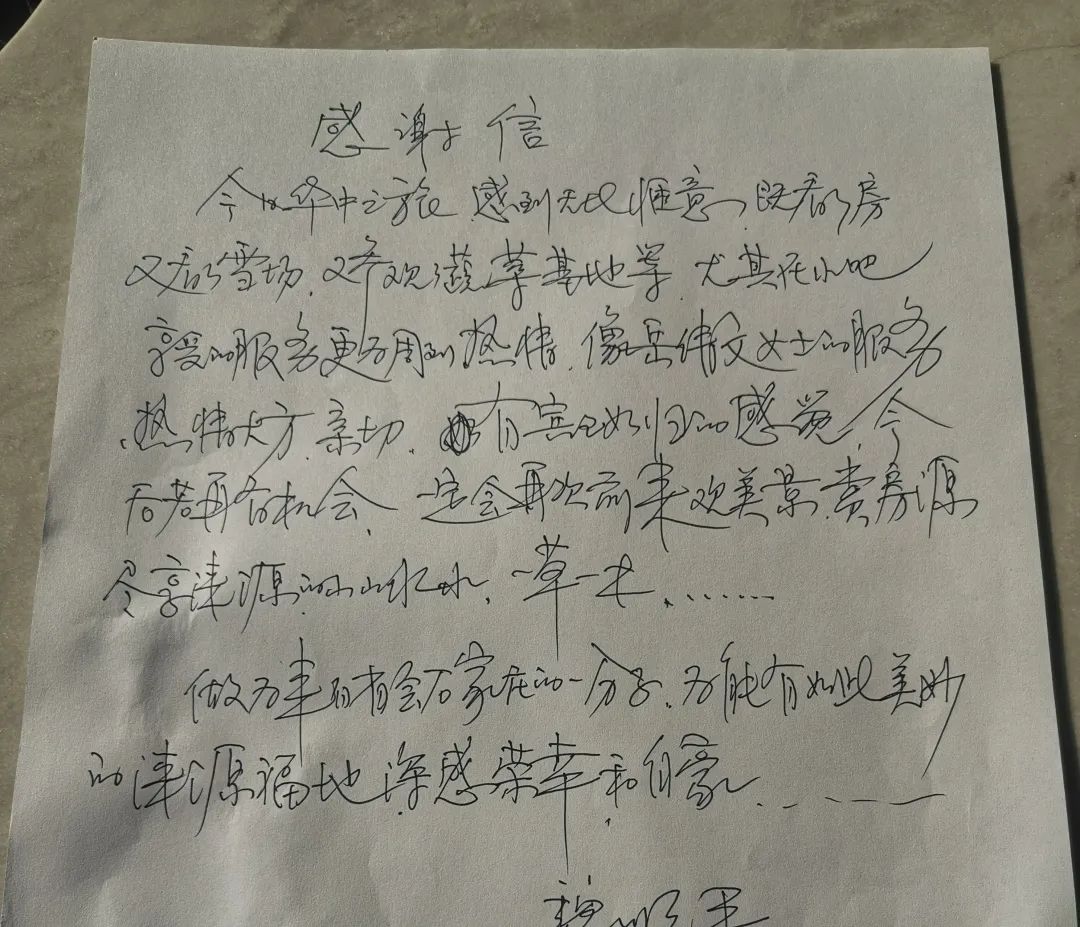 感谢信
今 华中之旅 感到无比惬意，既看了房
又看了雪场，又参观蔬菜基地等，尤其在小吧
享受的服务更为周到热情，像岳倩文女士的服务
热情大方，亲切，有宾至如归的感觉，今
后若再有机会，一定会再次前来观美景，赏房源
尽享涞源的小山 水，一草一木，……
做为 家庄的一分子，为能有如此美妙
的涞源福地深感荣幸和自豪……